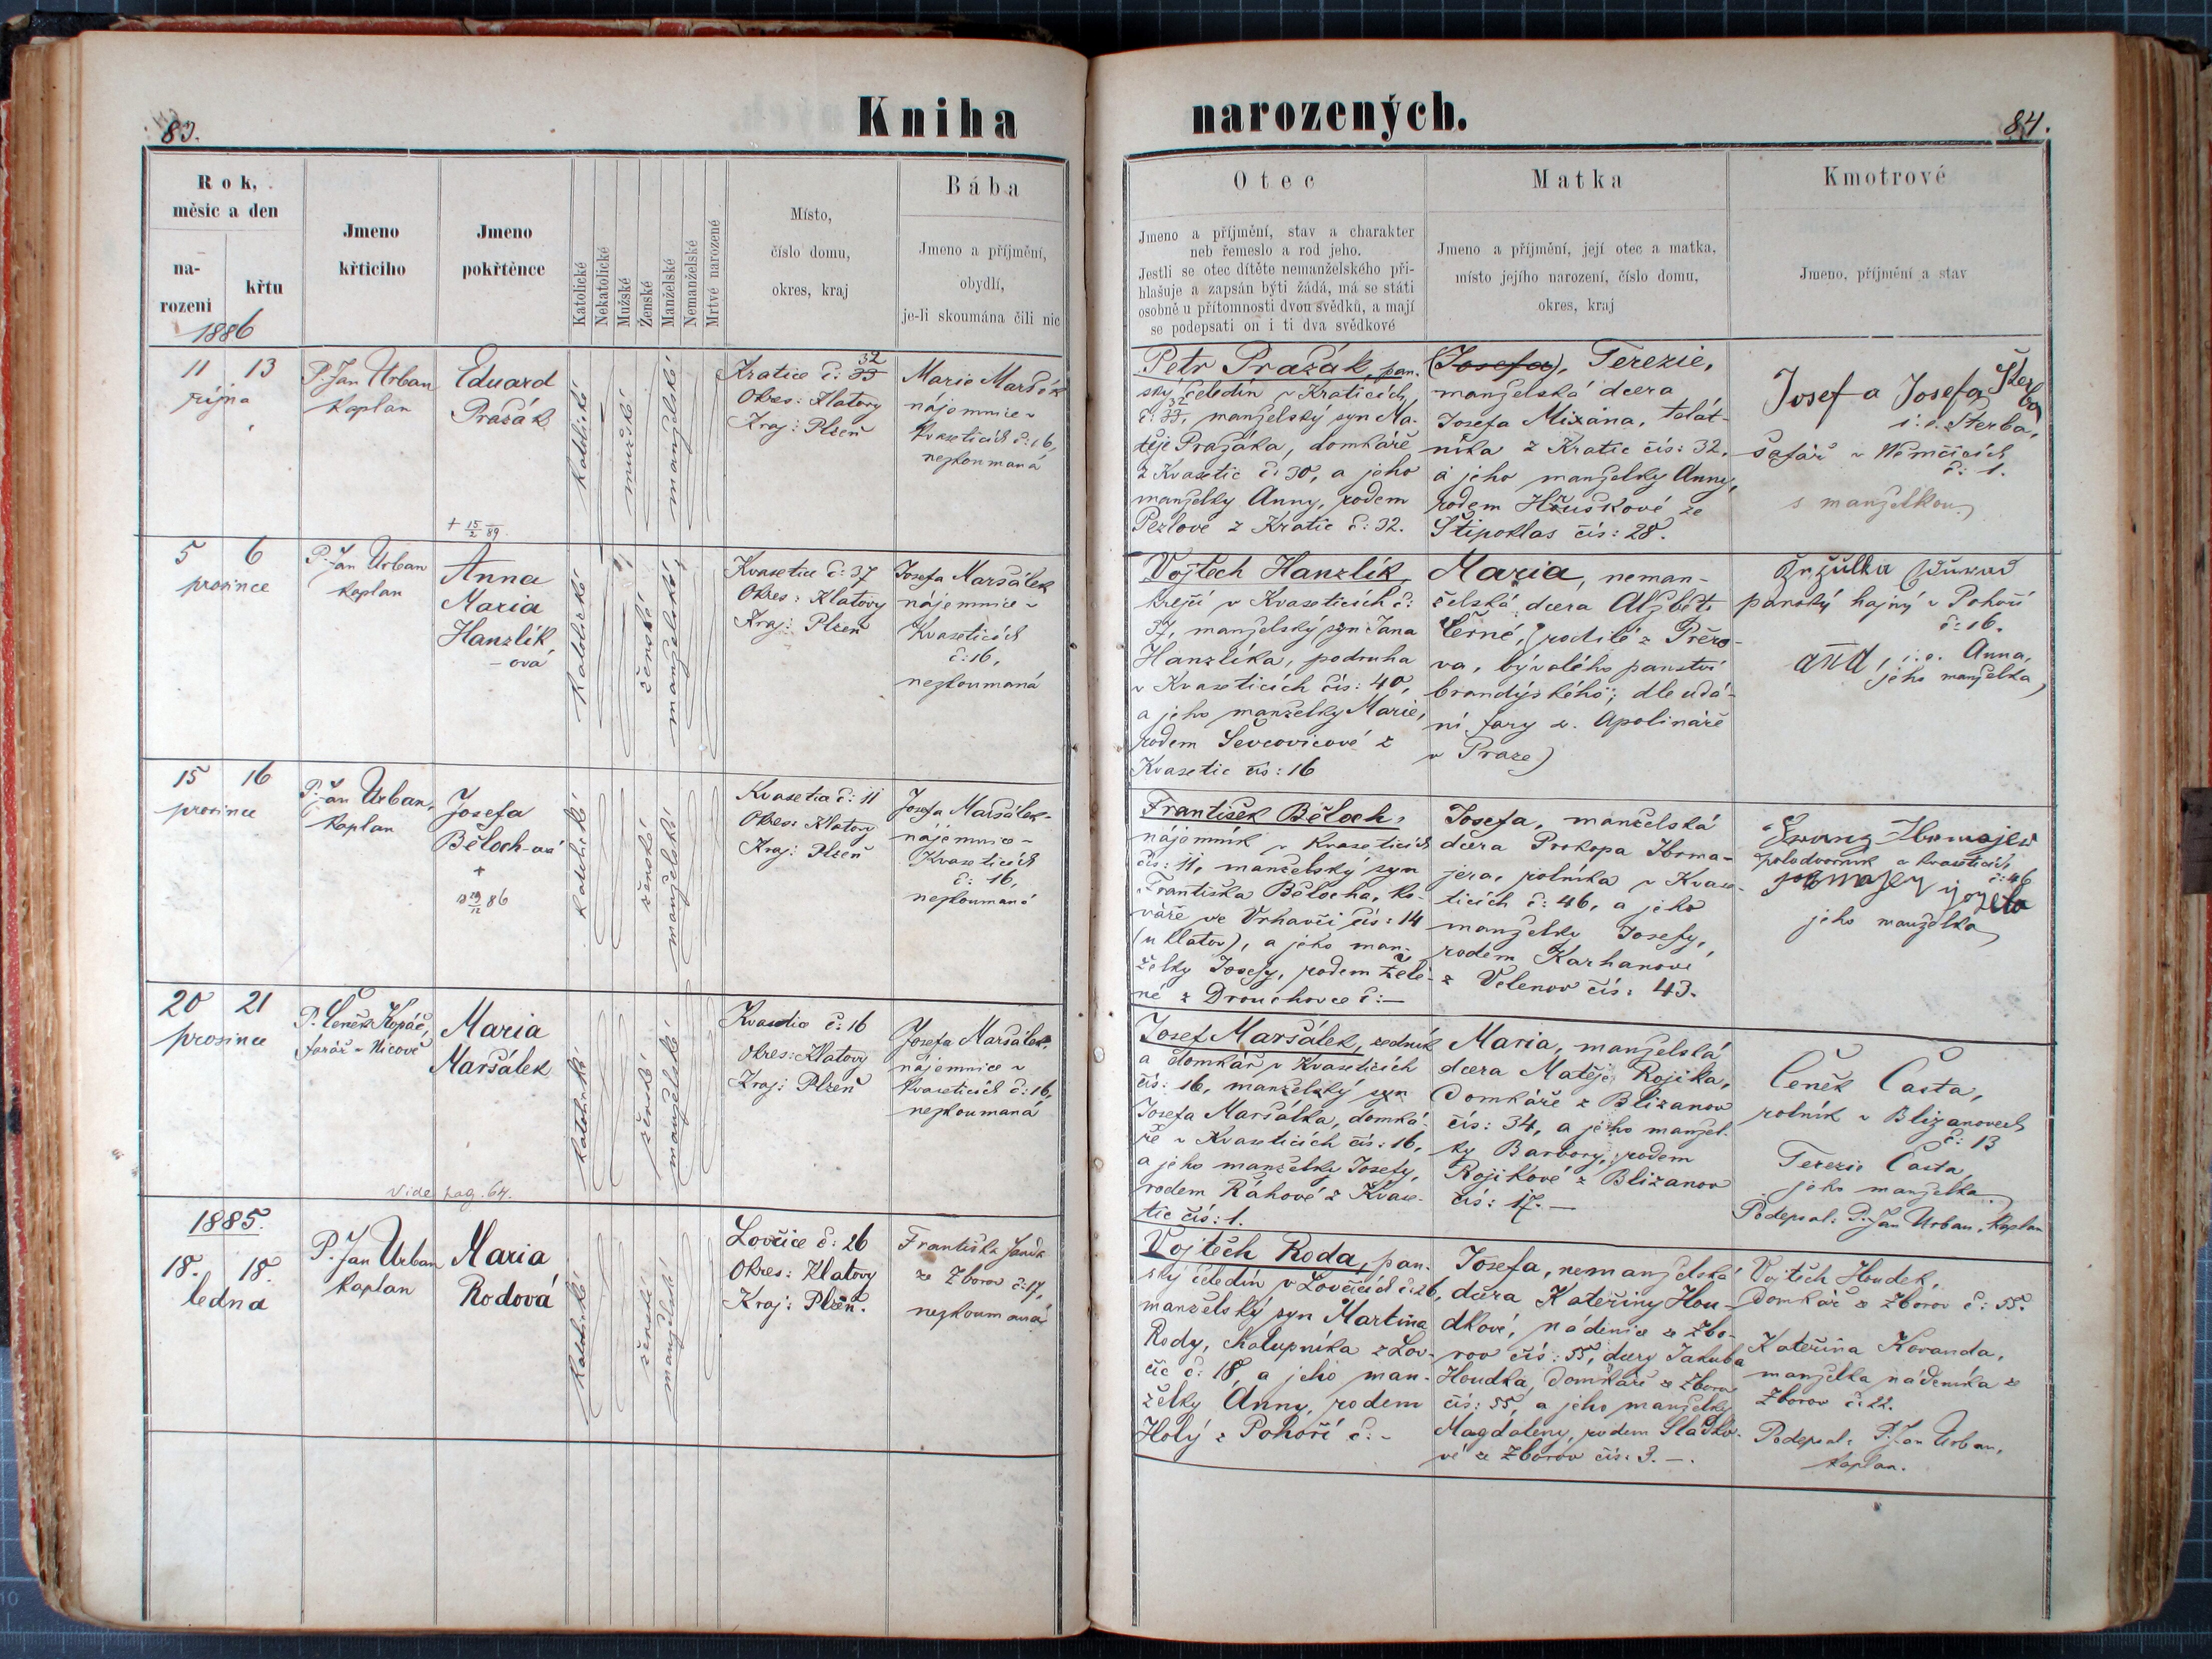 83.
Kniha
Rok,
měsíc a den
na-
rozeni
křtu
1886
Jmeno
křticího
Jmeno
pokřtěnce
Katolické
Nekatolické
Mužské
Ženské
Manželské
Nemanželské
Mrtvé narozené
Místo,
číslo domu,
okres, kraj
Bába
Jmeno a příjmění,
obydlí,
je-li skoumána čili nic
11 13
října
P. Jan Urban
kaplan
Eduard
Pražák
+ 15/2 89.
katolické
mužské
manželské
Kratice č: 33 32
Okres: Klatovy
Kraj: Plzeň
Marie
nájemnice v
Kvaseticích č: 16,
nezkoumaná
5 6
prosince
P. Jan Urban
kaplan
Anna
Maria
Hanzlík
-ova
katolické
ženské
manželské
Kvasetice č: 37
Okres: Klatovy
Kraj: Plzeň
Josefa Maršálek
nájemnice v
Kvaseticích
č: 16,
nezkoumaná
15 16
prosince
P. Jan Urban,
kaplan
Josefa
Běloch-ová
+
29/12 86
katolické
ženské
manželské
Kvasetice č: 11
Okres: Klatovy
Kraj: Plzeň
Josefa Maršálek
nájemnice v
Kvaseticích
č: 16,
nezkoumaná
20 21
prosince
P. Čeněk Kopáč,
farář v Nicově
Maria
Maršálek
vide pag. 64.
katolické
ženské
manželské
Kvasetice č: 16
Okres: Klatovy
Kraj: Plzeň
Josefa Maršálek
nájemnice v
Kvaseticích č: 16,
nezkoumaná
1885.
18. 18.
ledna
P. Jan Urban
kaplan
Maria
Rodová
katolické
ženské
manželské
Lovčice č: 26
Okres: Klatovy
Kraj: Plzeň.
Františka
ze Zborov č: 17,
nezkoumaná
narozených.
84.
Otec
Jmeno a příjmění, stav a charakter
neb řemeslo a rod jeho.
Jestli se otec dítěte nemanželského při-
hlašuje a zapsán býti žádá, má se státi
osobně u přítomnosti dvou svědků, a mají
se podepsati on i ti dva svědkové
Matka
Jmeno a příjmění, její otec a matka,
místo jejího narození, číslo domu,
okres, kraj
Kmotrové
Jmeno, příjmění a stav
Petr Pražák, pan-
ský čeledín v Kraticích
č: 33, 32 manželský syn Ma-
těje Pražáka, domkáře
z Kvasetic č: 30, a jeho
manželky Anny, rodem
Pezlové z Kratic č: 32.
(Josefa), Terezie,
manželská dcera
Josefa Mixána,
níka z Kratic čís: 32.
a jeho manželky Anny,
rodem Hřuškové ze
Štipoklas čís: 28.
Josef a Josefa Šterba
i. e. Šterba,
šafář v Němčicích
č: 1.
s manželkou
Vojtěch Hanzlík,
krejčí v Kvaseticích č:
37, manželský syn Jana
Hanzlíka, podruha
v Kvaseticích čís: 40,
a jeho manželky Marie,
rodem Ševcovicové z
Kvasetic čís: 16
Maria, neman-
želská dcera Alžběty
Černé, (rodilé z Přero-
va, bývalého panství
brandýského; dle udá-
ní fary sv. Apolináře
v Praze)
panský hajný v Pohoří
č: 16.
i. e. Anna,
jeho manželka
František Běloch,
nájemník v Kvaseticích
čís: 11, manželský syn
Františka Bělocha, ko-
váře ve Vrhavči čís: 14
(u Klatov), a jeho man-
želky Josefy, rodem Zele-
né z Drouhovce č: —
Josefa, manželská
dcera Prokopa Hrma-
jera, rolníka v Kvase-
ticích č: 46, a jeho
manželky Josefy,
rodem Karhanové
z Velenov čís: 43.
polodvorník v Kvaseticích
č: 46
jeho manželka
Josef Maršálek, zedník
a domkář v Kvaseticích
čís: 16, manželský syn
Josefa Maršálka, domká-
ře v Kvaseticích čís: 16,
a jeho manželky Josefy,
rodem Ráhové z Kvase-
tic čís: 1.
Maria, manželská
dcera Matěje Rojíka,
domkáře z Blizanov
čís: 34, a jeho manžel-
ky Barbory, rodem
Rojíkové z Blizanov
čís: 17. —
Čeněk Časta,
rolník v Blizanovech
č: 13
Terezie Časta,
jeho manželka.
Podepsal: P. Jan Urban, kaplan
Vojtěch Roda, pan-
ský čeledín v Lovčicích č: 26,
manželský syn Martina
Rody, chalupníka z Lov-
čic č: 18, a jeho man-
želky Anny, rodem
Holý z Pohoří č: -
Josefa, nemanželská
dcera Kateřiny Hou-
dkové, nádenice ze Zbo-
rov čís: 55, dcery Jakuba
Houdka, domkáře ze Zborov
čís: 55, a jeho manželky
Magdaleny, rodem Sladko-
vé ze Zborov čís: 3. —.
Vojtěch Houdek,
domkář ze Zborov č: 55.
Kateřina Kovanda,
manželka nádeníka ze
Zborov č: 22.
Podepsal: P. Jan Urban,
kaplan.